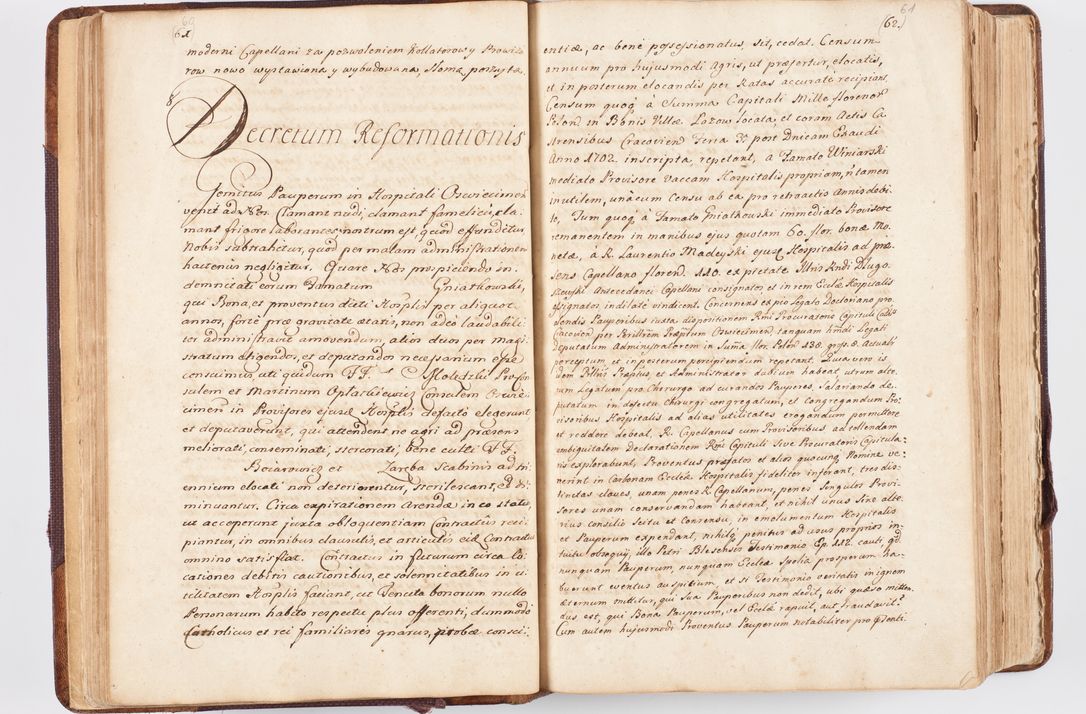 60
61
moderni Capellani za pozwoleniem kollatorow y Prowizo
row nowo wystawiona y wybudowana, Slomą poszyta.
8
Decretum Reformationis
Gemitus Pauperum in Hospitali Osviecimen
venit ad Nos Clamant nudi, clamant famelici, cla-
mant frigore laborantes, nostrum est, quod effunditur,
Nobis subtrahitur, quod per malam administrationem
hactenus negligitur. Quare Nos prospiciendo in-
demnitati eorum Famatum Gniatkowski,
qui Bona, et proventus dicti Hosplis per aliquot
annos, forte præ gravitate ætatis, non adeo laudabili-
ter administravit amovendum, alios duos per Magi-
stratum eligendos, et deputandos necessarium esse
censuimus, uti quidem FF. Proconsulem
sulem et Martinum Consulem Osvie-
cimen in Provisores ejusd Hosplis defacto elegerunt
et deputaverunt, qui attendent ne agri ad præsens
meliorati, conseminati, stercorati, bene culti FF.
Boiarowicz et Zaręba Scabinis ad tri-
ennium elocati non deteriorentur, sterilescant, et di-
minuantur. Circa expirationem Arendæ in eo statu,
ut acceperunt juxta obloquentiam Contractus reci-
piantur, in omnibus clausulis, et articulis ejd Contractui
omnino satisfiat. Contractus in futurum circa lo-
cationes debitis cautionibus, et solennitatibus in u-
tilitatem Hosplis faciant, ut Tenuta bonorum nullo
Personarum habito respectu plus offerenti, dummodo
Catholicus et rei familiares gnarus, probæ consci-
61
(62.)
entiæ, ac bene possessionatus, sit, cedat. Censum
annuum pro hujusmodi Agris, ut præfertur, elocatis,
et in posterum elocandis per Ratas accurate recipiant.
Censum quoq à Summa Capitali Mille florenor
Polon in Bonis Villæ Lazow locata, et coram Actis Ca-
strensibus Cracovien Feria post Dnicam Exaudi
Anno 1702. inscripta, repetant, à Famato Winiarski
mediato Provisore Vaccam Hospitalis propriam, n tamen
inutilem, unacum Censu ab ea pro retroactis Annis debi-
to, Tum quoq à Famato Gniatkowski immediato Provisore
remanentem in manibus ejus quotam 60. flor. bonæ Mo-
netæ, à R. Laurentio Madeyski ejusq Hospitalis ad præ-
sens Capellano floren. 110. ex pietate Illris Rndi Dlugo-
szewski Antecedanei Capellani consignatos et in rem Ecclæ Hospitalis
assignatos indilate vindicent. Concernens ex pio Legato Doctoriano pro-
sendis Pauperibus iuxta dispositionem Rmi Procuratoris Capituli Cath
Cracovien per Perillrem Præptum Osviecimen tanquam hndi Legati
Deputatum Administratorem in Suma flor. Polon 138. gros. 8. Actuali
perceptum, et in posterum percipiendum repetant. Quia vero is
dem Perillris Præptus, et Administrator dubium habeat utrum alte-
rum Legatum pro Chirurgo ad curandos Pauperes, Salariando de-
putatum in defectu Chirurgi congregatum, et congregandum Pro-
visoribus Hospitalis ad alias utilitates erogandum permittere
et reddere debeat. R. Capellanus cum Provisoribus ad tollendam
ambiguitatem Declarationem Rmi Capituli Sive Procuratoris Capitula-
ris explorabunt, Proventus præfatos et alios quocunq Nomine ve-
nerint in Carbonam Ecclæ Hospitalis fideliter inferant, tres dis-
tinctas claves, unam penes R. Capellanum, penes Singulos Provi-
sores unam conservandam habeant, et nihil unus sine alte-
rius consilio Scitu et Consensu, in emolumentum Hospitalis
et Pauperum expendant, nihilq penitus ad usus proprios in-
tuitu obsequij, illo Petri Blesensis Testimonio Ep. 112. cauti, qd
nunquam Pauperum, nunquam Ecclæ Spolia prosperum ha-
buerunt eventus auspitium, et si Testimonio veritatis in ignem
æternum mittitur, qui Sua Pauperibus non dedit, ubi quæso mitten-
dus est, qui Bona Pauperum, vel Ecclæ rapuit, aut fraudavit?
Cum autem hujusmodi Proventus Pauperum notabiliter pro